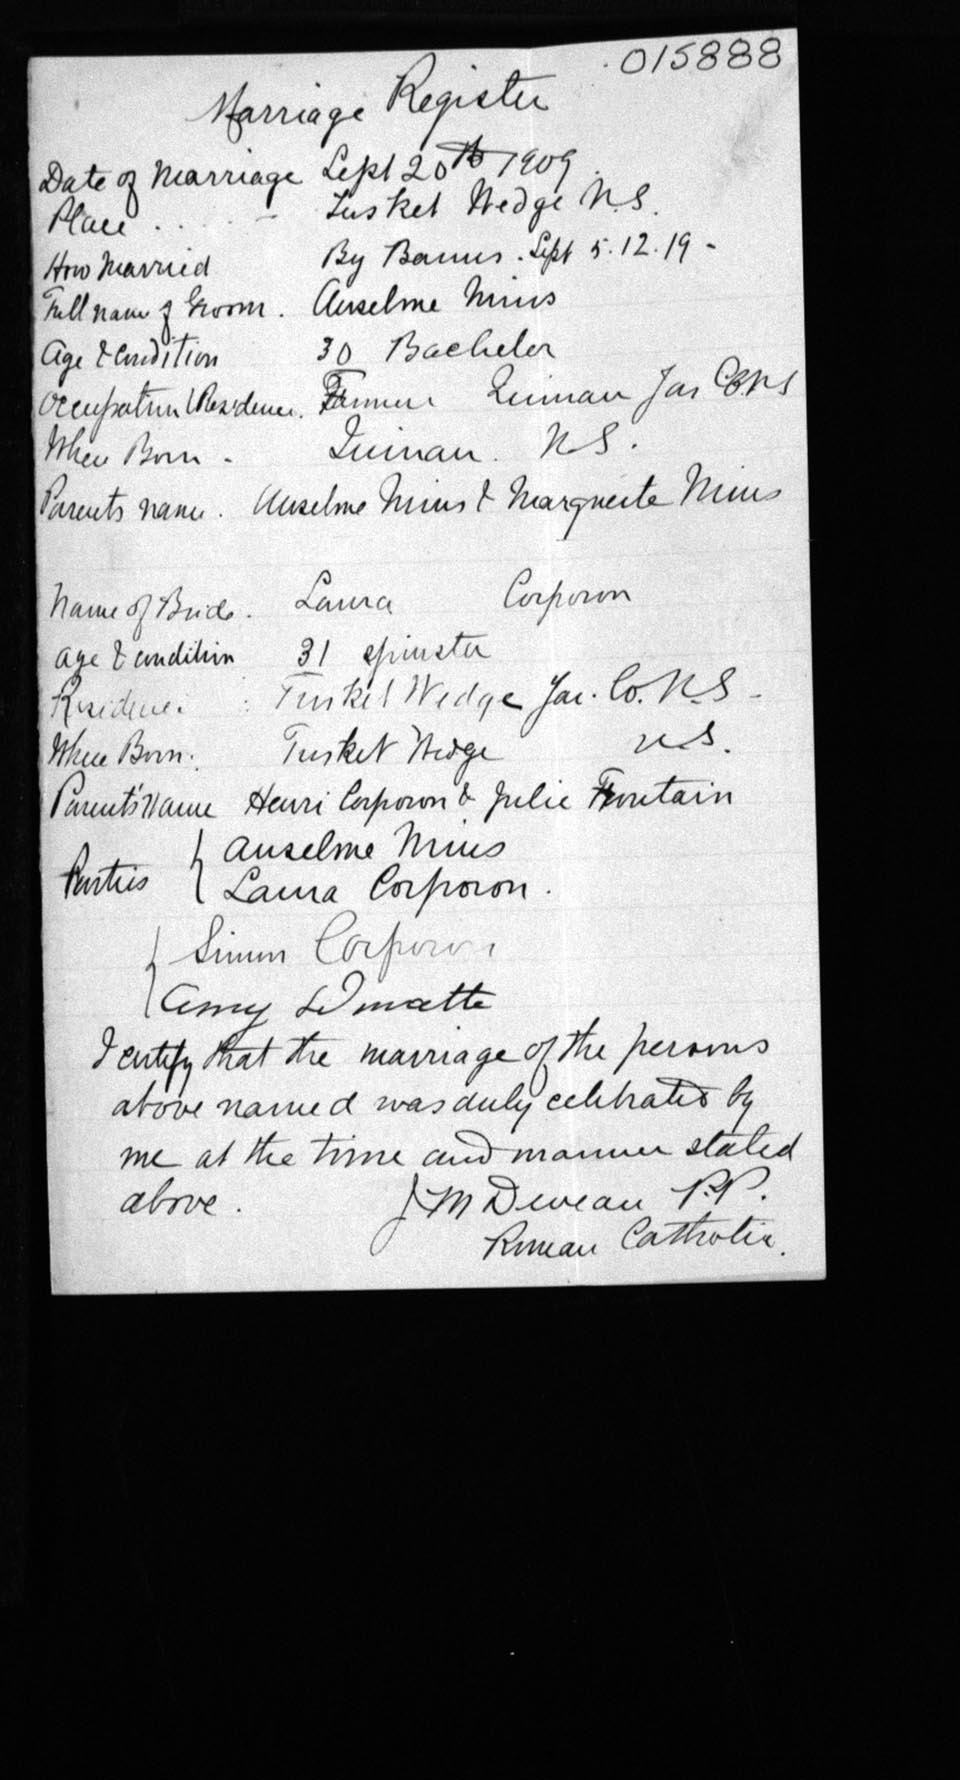 015888
Marriage Register
Date of Marriage Sept 20th 1909.
Place . . . . - Tusket Wedge N.S.
How Married By Banns. Sept 5. 12. 19 -
Full name of Groom. Anselme Mius
Age & Condition 30 Bachelor
Occupation & Residence. Farmer Quinan Yar Co. N S
Where Born - Quinan. N S.
Parents name. Anselme Mius & Marguerite Mius
Name of Bride. Laura Corporon
Age & condition 31 spinster
Residence : Tusket Wedge Yar. Co. N.S -
Where Born. Tusket Wedge N.S.
Parents' Name Henri Corporon & Julie Frontain
Parties { Anselme Mius
Laura Corporon.
{ Simon Corporon
Amy
I certify that the marriage of the persons
above named was duly celebrated by
me at the time and manner stated
above. J M Deveau P.P.
Roman Catholic.